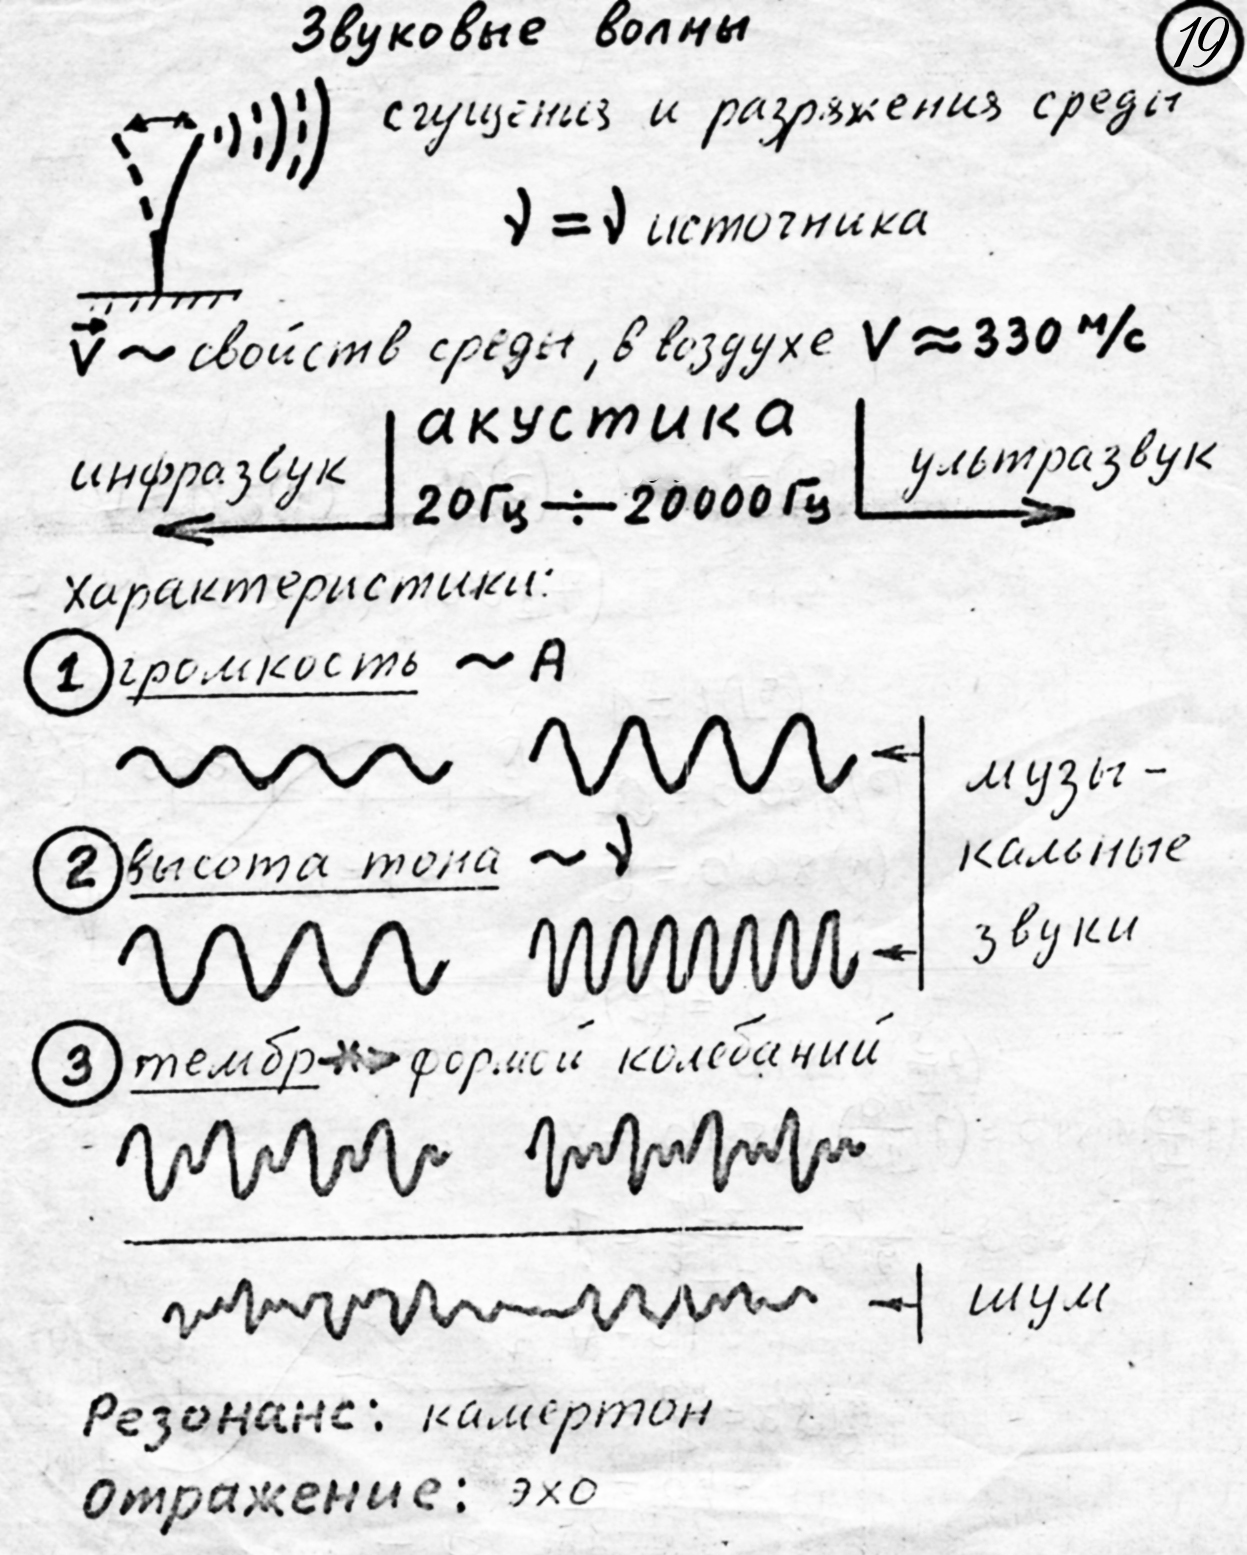 Звуковые волны
19
сгущения и разряжения среды
ν = ν источника
v ~ свойств среды, в воздухе V ≈ 330 м/с
акустика
инфразвук
20 Гц ÷ 20000 Гц
ультразвук
характеристики:
1 громкость ~ A
2 высота тона ~ ν
музы-
кальные
звуки
3 тембр формой колебаний
шум
Резонанс: камертон
Отражение: эхо